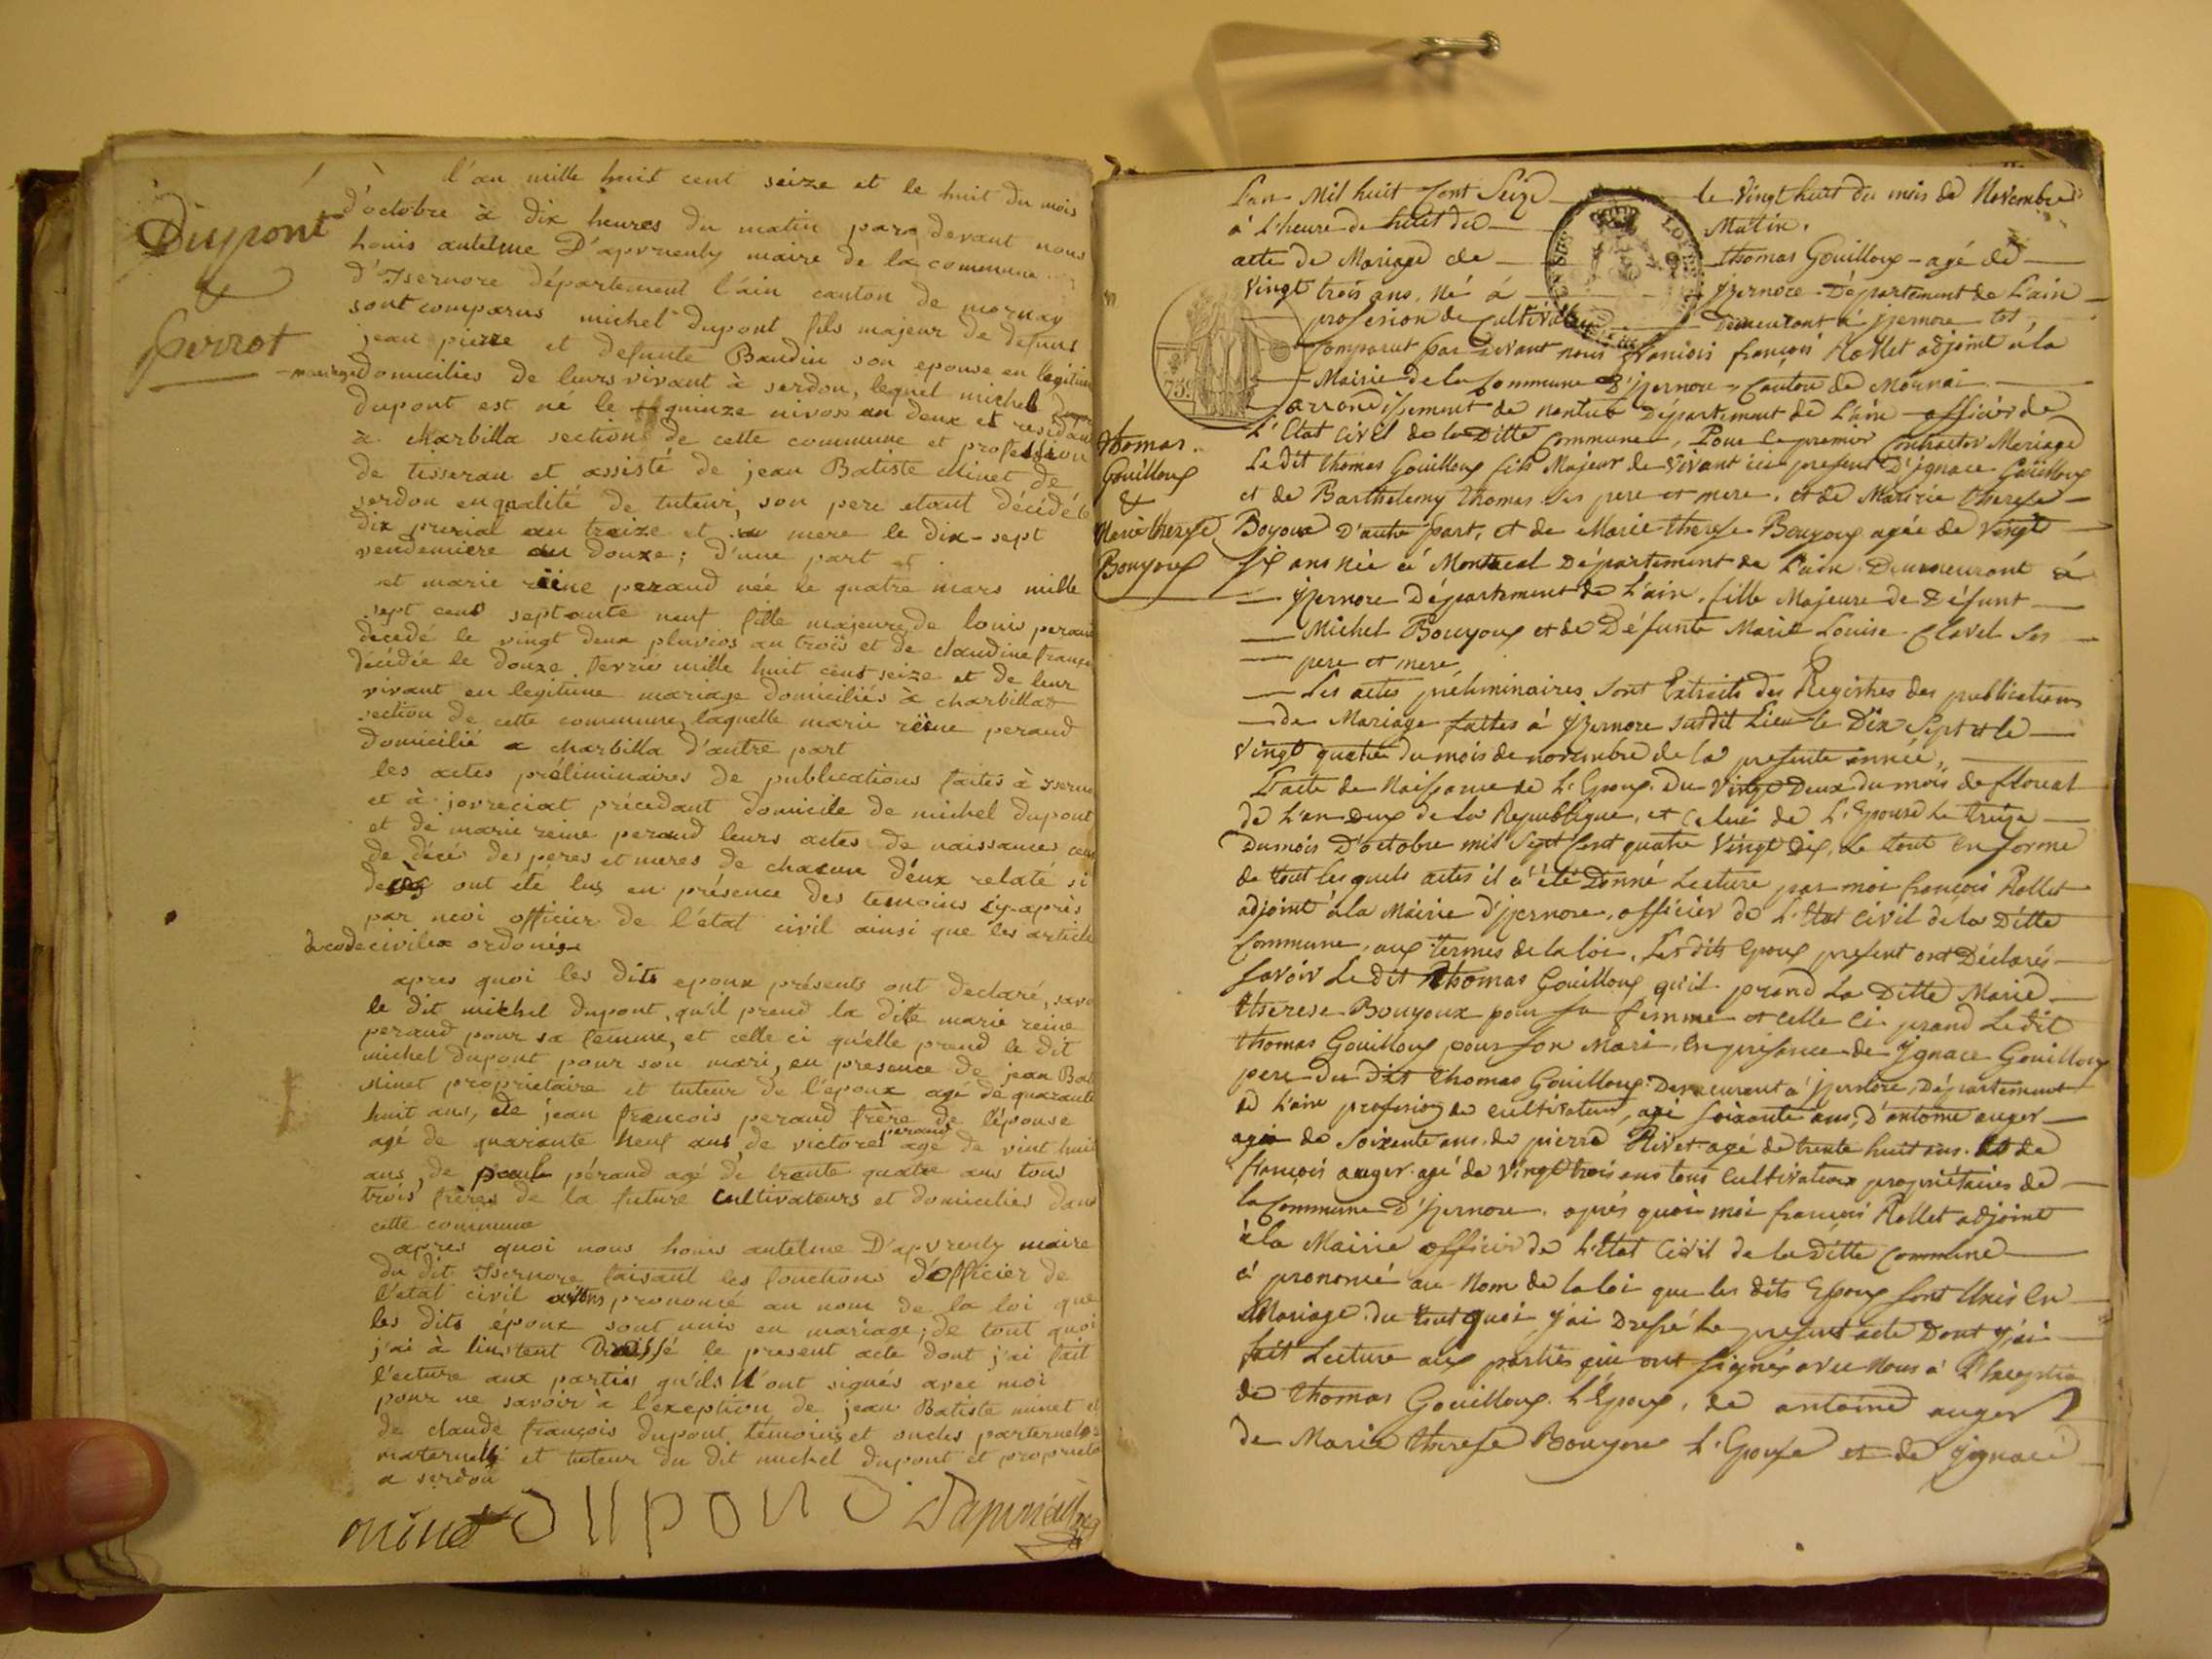 Dupont
&
perrot
l'an mille huit cent seize et le huit du mois
d'octobre à dix heures du matin par devant nous
louis antelme D'apvrieulx maire de la commune
d'Isernore département l'ain canton de mornay
sont comparus michel dupont fils majeur de defunt
jean pierre et defunte Baudin son epouse en legitime
mariage domiciliés de leurs vivant à serdon, lequel michel
dupont est né le quinze nivose an deux et residant
à charbilla section de cette commune et profession
de tisseran et assisté de jean Batiste Minet de
serdon en qualité de tuteur, son pere etant décédé le
dix prerial an treize et sa mere le dix-sept
vendemiere an douze; d'une part et
et marie reine peraud née le quatre mars mille
sept cent septante neuf fille majeure de louis peraud
decedé le vingt deux pluvios an trois et de claudine
décédée le douze fevrié mille huit cent seize et de leur
vivant en legitime mariage domiciliés à charbillat
section de cette commune, laquelle marie reine peraud
domicilié a charbilla d'autre part
les actes préliminaires de publications faites à Iserno
et à jovreciat précedant domicile de michel dupont
et de marie reine peraud leurs actes de naissances ceux
de décés des peres et meres de chacun d'eux relaté si
ont été lus en présence des temoins cy-après
par moi officier de l'état civil ainsi que les article
du code civile ordonée
apres quoi les dits epoux présents ont declaré, savo
le dit michel dupont, qu'il prend la dite marie reine
peraud pour sa femme, et celle ci qu'elle prend le dit
michel dupont pour son mari, en presence de jean Bat
Minet propriétaire et tuteur de l'époux agé de quarante
huit ans, de jean francois peraud frère de l'épouse
agé de quarante neuf ans, de victore peraud agé de vint huit
ans, de paul péraud agé de trante quatre ans tous
trois frères de la future cultivateurs et domiciliés dans
cette commune
apres quoi nous louis antelme D'apvrieulx maire
du dit Isernore faisant les fonctions d'officier de
l'état civil avons prononcé au nom de la loi que
les dits époux sont unis en mariage; de tout quoi
j'ai à linstent Dressé le present acte dont j'ai fait
l'ecture aux parties qu'ils n'ont signés avec moi
pour ne savoir à l'exeption de jean Batiste minet et
de claude françois dupont temoins et oncles parternels
maternels et tuteur du dit michel dupont et propriet
a serdon
minet DUPOND
Thomas
Gouilloux
&
Marie therese
Bouyoux
L'an Mil huit Cent Seize le Vingt huit du mois de Novembre
à L'heure de huit du Matin.
acte de Mariage de thomas Gouilloux agé de
Vingt trois ans, Né à Yzernore Département de L'ain
profesion de Cultivateur Demeurant à yzernore
Comparut par devant nous françois Rollet adjoint à la
Mairie de la Commune d'yzernore Canton de Mornai
arrondissement de nantua Département de L'ain officier de
L'Etat Civil de la Ditte Commune, Pour Contracter Mariage
Le dit thomas Gouilloux fils Majeur de Vivant ici present D'ignace Gouilloux
et de Barthelemy thomas ses pere et mere, et de Marie therese
Boyoux D'autre part, et de Marie therese Bouyoux agée de Vingt
six ans née à Montreal Département de L'ain Demeurant à
yzernore Département de L'ain, fille Majeure de Défunt
Michel Bouyoux et de Défunte Marie Louise Clavel ses
pere et mere,
Les actes préliminaires sont Extraits des Registres des publications
de Mariage faittes à yzernore susdit Lieu le Dix Sept et le
Vingt quatre du mois de novembre de la presente année,
L'acte de Naissance de L'Epoux du Vingt Deux du mois de floreal
de L'an deux de la Republique, et Celui de L'Epouse le treize
du mois D'octobre mil Sept Cent quatre Vingt Dix, le tout en forme
de tout Lesquels actes il a été Donné Lecture par moi françois Rollet
adjoint à la Mairie d'yzernore, officier de L'Etat Civil de la Ditte
Commune, aux termes de la loi, Les dits Epoux present ont Déclarés
Savoir Le dit thomas Gouilloux qu'il prend La Ditte Marie
therese Bouyoux pour sa femme et celle Ci prand Le dit
thomas Gouilloux pour son Mari, en presence de Ignace Gouilloux
pere du dit thomas Gouilloux Demeurant à yzernore, Département
de L'ain profesion de cultivateur, agé soixante ans, D'antoine auger
agé de Soixente ans, de pierre Rivet agé de trente huit ans. et de
françois auger agé de Vingt trois ans tous Cultivateurs propriétaires de
la Commune d'yzernore, après quoi moi françois Rollet adjoint
à la Mairie officier de L'Etat Civil de la ditte Commune
à prononcé au Nom de la loi que les dits Epoux sont Unis en
Mariage. du tout quoi j'ai Dressé le present acte Dont j'ai
fait Lecture aux parties qui ont signés avec Nous à L'Exception
de thomas Gouilloux L'Epoux, de antoine auger
de Marie therese Bouyoux L'Epouse et de ignace